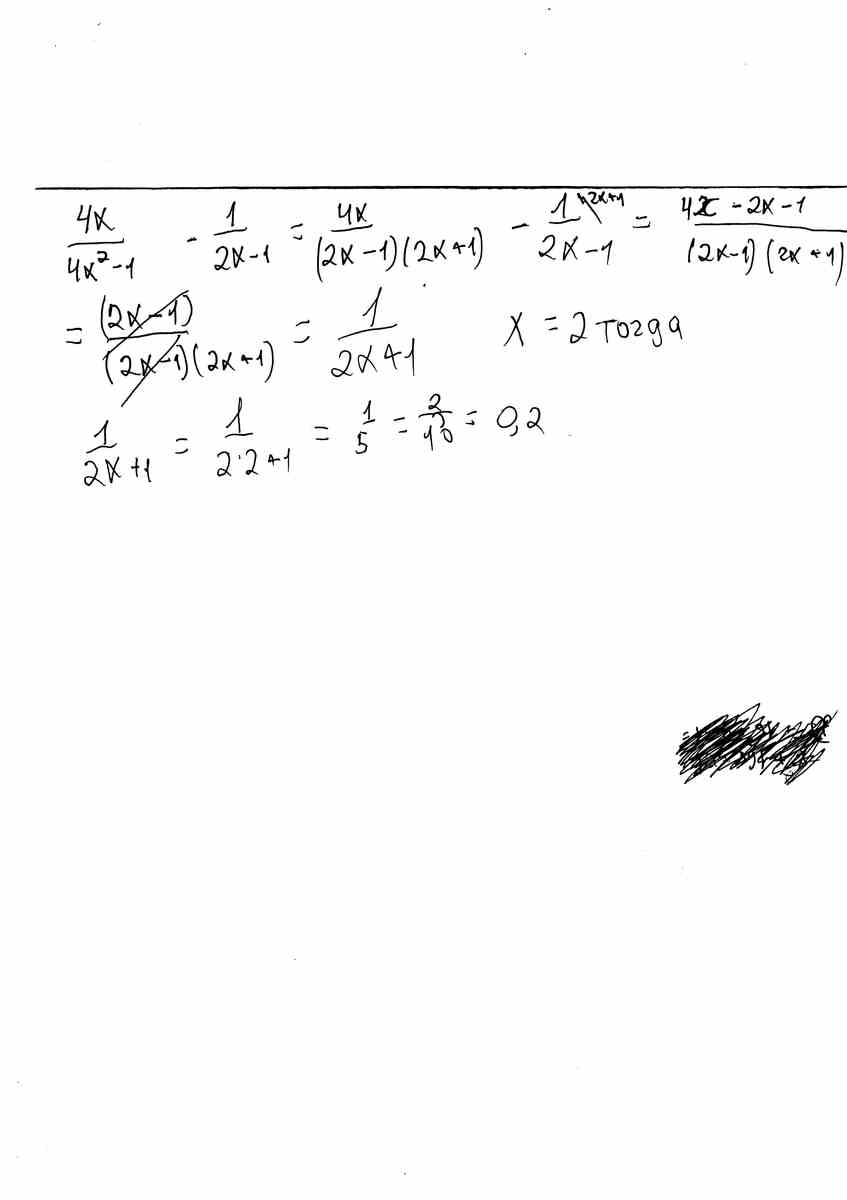 4x/(4x²-1) - 1/(2x-1) = 4x/((2x-1)(2x+1)) - 1\2x+1/(2x-1) = (4x-2x-1)/((2x-1)(2x+1))
= (2x-1)/((2x-1)(2x+1)) = 1/(2x+1) x = 2 тогда
1/(2x+1) = 1/(2·2+1) = 1/5 = 2/10 = 0,2